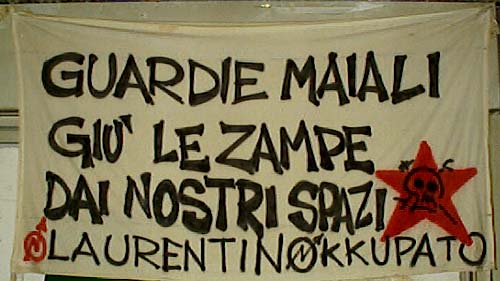 GUARDIE MAIALI
GIU' LE ZAMPE
DAI NOSTRI SPAZI
LAURENTINOKKUPATO